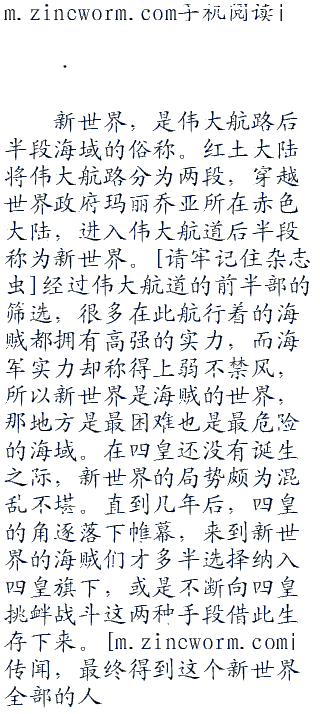 m.zincworm.com手机阅读i
.
新世界，是伟大航路后
半段海域的俗称。红土大陆
将伟大航路分为两段，穿越
世界政府玛丽乔亚所在赤色
大陆，进入伟大航道后半段
称为新世界。[请牢记住杂志
虫]经过伟大航道的前半部的
筛选，很多在此航行着的海
贼都拥有高强的实力，而海
军实力却称得上弱不禁风，
所以新世界是海贼的世界，
那地方是最困难也是最危险
的海域。在四皇还没有诞生
之际，新世界的局势颇为混
乱不堪。直到几年后，四皇
的角逐落下帷幕，来到新世
界的海贼们才多半选择纳入
四皇旗下，或是不断向四皇
挑衅战斗这两种手段借此生
存下来。[m.zincworm.comi
传闻，最终得到这个新世界
全部的人